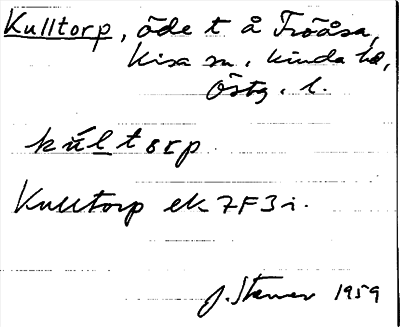 Kulltorp, öde t å Fröåsa,
Kisa sn, Kinda hd,
Östg. l.
kúltorp
Kulltorp ek 7F3i.
J. Stener 1959